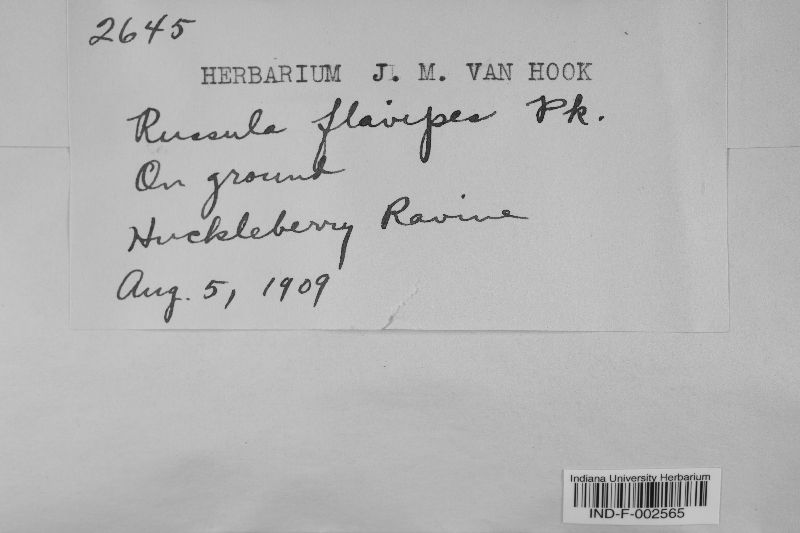 2645
HERBARIUM J. M. VAN HOOK
Russula flavipes Pk.
On ground
Huckleberry Ravine
Aug. 5, 1909
Indiana University Herbarium
IND-F-002565